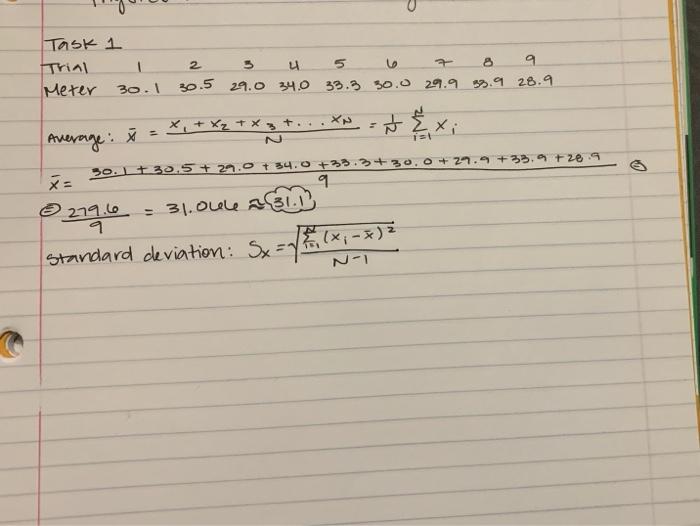 Task 1
Trial 1 2 3 4 5 6 7 8 9
Meter 30.1 30.5 29.0 34.0 33.3 30.0 29.9 33.9 28.9
Average: x̄ = (x₁ + x₂ + x₃ + ... xN)/N = 1/N ∑ᵢ₌₁ᴺ xᵢ
x̄ = (30.1 + 30.5 + 29.0 + 34.0 + 33.3 + 30.0 + 29.9 + 33.9 + 28.9)/9 =
= 279.6/9 = 31.066 ≈ 31.1
Standard deviation: Sx = √(∑ᵢ₌₁ᴺ (xᵢ - x̄)²/(N-1))